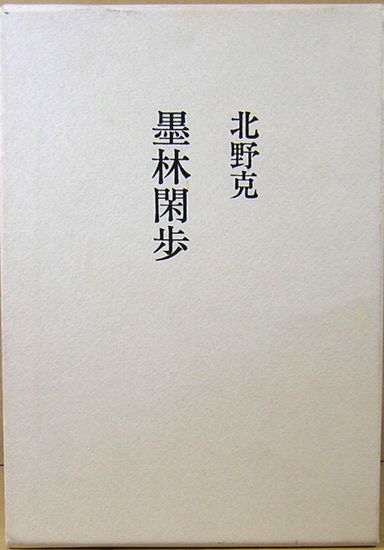 北野克
墨林閑歩